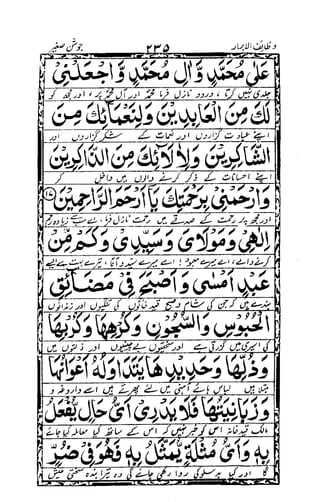 وظائف الابرار ۲۳۵ جوشن صغیر
عَلٰى مُحَمَّدٍ وَّاٰلِ مُحَمَّدٍ وَّاجْعَلْنِىْ
جلدی نہیں کرتا درود نازل فرما محمدؐ اور آل محمدؐ پر، اور مجھ کو
لَكَ مِنَ الْعَابِدِيْنَ وَلِنَعْمَائِكَ مِنَ
اپنے عبادت گزاروں اور نعمات کے شکر گزاروں اور
الشَّاكِرِيْنَ وَلِاٰلَائِكَ مِنَ الذَّاكِرِيْنَ
اپنے احسانات کے ذکر کرنے والوں میں داخل کر
وَارْحَمْنِىْ بِرَحْمَتِكَ يَا اَرْحَمَ الرَّاحِمِيْنَ
اور مجھ پر رحمت کے صدقے میں رحمت نازل فرما، اے سب سے زیادہ رحم
اِلٰهِىْ وَمَوْلَاىَ وَسَيِّدِىْ وَكَمْ مِّنْ
کرنے والے، اے میرے معبود! اے میرے سید و آقا، تیرے بہت سے ایسے
عَبْدٍ اَمْسٰى وَاَصْبَحَ فِىْ مَضَائِقِ
بندے ہیں کہ جن کی شام و صبح قید خانوں کی تنگیوں اور زندانوں
الْحُبُوْسِ وَالسُّجُوْنِ وَكُرَهِهَا وَكُرَبِهَا
کی اسیری میں گزرتی ہے اور سختیوں بے چینیوں اور ذلتوں میں
وَذُلِّهَا وَحَدِيْدِهَا يَتَدَاوَلُهٗ اَعْوَانُهَا
مبتلا ہیں لباس ہائے آہنی میں لئے پھرتے ہیں اسے داروغہ و
وَزَبَانِيَتُهَا فَلَا يَدْرِىْ اَىُّ حَالٍ يُفْعَلُ
مالک قید خانہ اس کو خبر نہیں کہ اس کے ساتھ کیا معاملہ کیا جائے
بِهٖ وَاَىُّ مُثْلَةٍ يُّمَثَّلُ بِهٖ فَهُوَ فِىْ ضُرٍّ
گا اور کیا بدسلوکی روا رکھی جائے گی وہ تیرا بندہ سختی